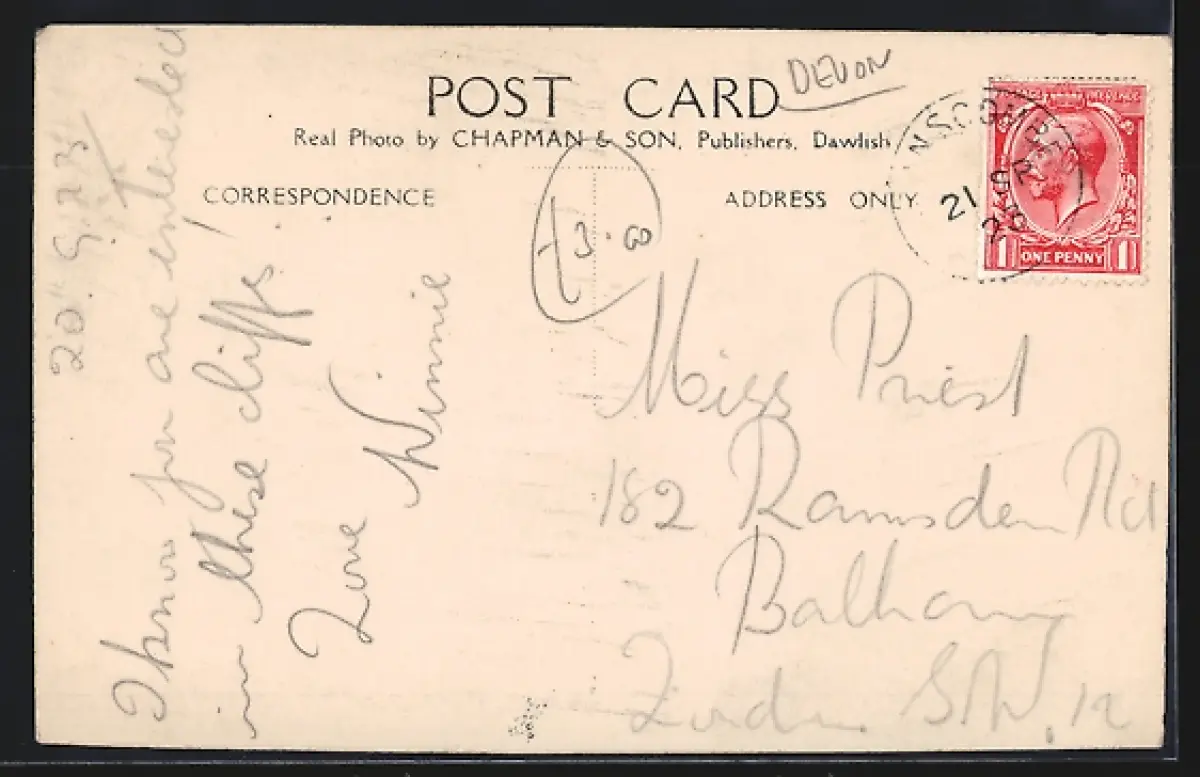 DEVON
POST CARD
Real Photo by CHAPMAN & SON, Publishers, Dawlish
CORRESPONDENCE
ADDRESS ONLY
NSCOMBE
21 SP
25
ONE PENNY
1 1
I know you are interested
in these cliffs
Love Winnie
Miss Priest
182 Ramsden Rd
Balham
London S.W.12